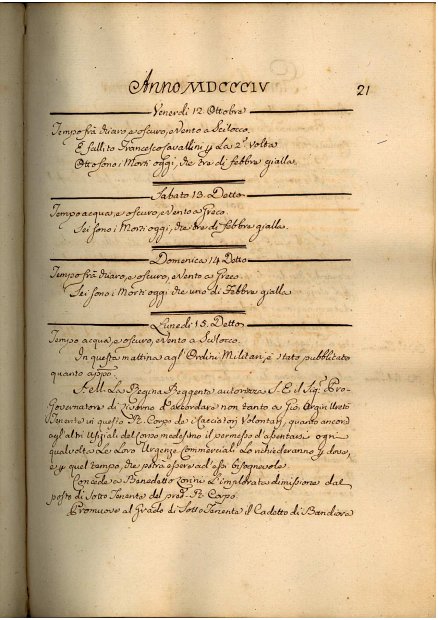 Anno MDCCCIV
21
Venerdi 12. Ottobre
Tempo frà chiaro, e oscuro, e Vento a Scilocco.
È fallito Francesco Cavallini p La 2ª volta
Otto sono i Morti oggi, che tre di febbre gialla.
Sabato 13. Detto
Tempo acqua, e oscuro, e Vento a Greco.
Sei sono i Morti oggi, che tre di febbre gialla.
Domenica 14 Detto
Tempo frà chiaro, e oscuro, e Vento a Greco.
Sei sono i Morti oggi che uno di Febbre gialla
Lunedi 15. Detto
Tempo acqua, e oscuro, e Vento a Scilocco.
In questa mattina agl'Ordini Militari, è stato pubblicato
quanto appo
S. M. La Regina Reggente autorizza S. E. il Sigr. Pro-
Governatore di Livorno d'accordare non tanto a Gio
Tenente in questo R. Corpo de i Cacciatori Volontari, quanto ancora
agl'altri Ufiziali del Corpo medesimo il permesso d'assentarsi ogni
qualvolta Le Loro Urgenze Commerciali Lo richiederanno p dove,
e p quel tempo, che potrà essere ad essi bisognevole.
Concede a Benedetto L'implorata dimissione dal
posto di Sotto Tenente del R. Corpo.
Promuove al Grado di Sotto Tenente il Cadetto di Bandiera